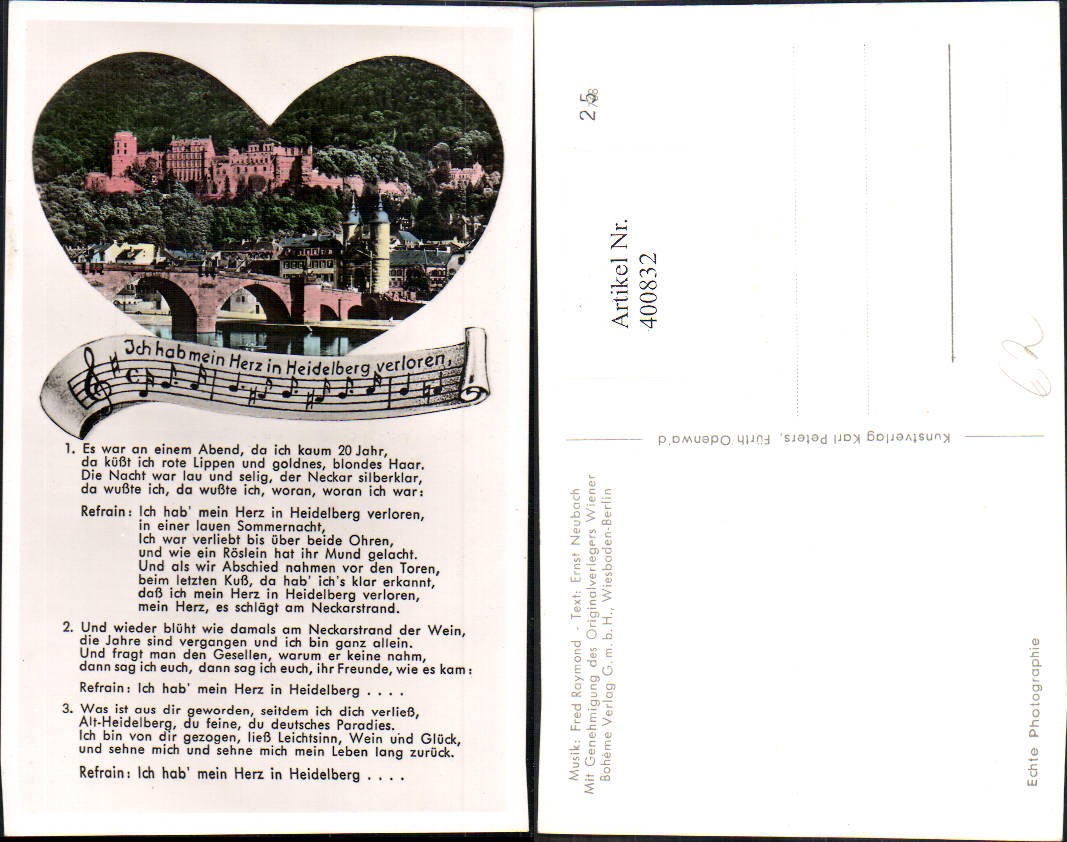 Ich hab mein Herz in Heidelberg verloren,
1. Es war an einem Abend, da ich kaum 20 Jahr,
da küßt ich rote Lippen und goldnes, blondes Haar.
Die Nacht war lau und selig, der Neckar silberklar,
da wußte ich, da wußte ich, woran, woran ich war:
Refrain: Ich hab' mein Herz in Heidelberg verloren,
in einer lauen Sommernacht,
Ich war verliebt bis über beide Ohren,
und wie ein Röslein hat ihr Mund gelacht.
Und als wir Abschied nahmen vor den Toren,
beim letzten Kuß, da hab' ich's klar erkannt,
daß ich mein Herz in Heidelberg verloren,
mein Herz, es schlägt am Neckarstrand.
2. Und wieder blüht wie damals am Neckarstrand der Wein,
die Jahre sind vergangen und ich bin ganz allein.
Und fragt man den Gesellen, warum er keine nahm,
dann sag ich euch, dann sag ich euch, ihr Freunde, wie es kam:
Refrain: Ich hab' mein Herz in Heidelberg . . . .
3. Was ist aus dir geworden, seitdem ich dich verließ,
Alt-Heidelberg, du feine, du deutsches Paradies.
Ich bin von dir gezogen, ließ Leichtsinn, Wein und Glück,
und sehne mich und sehne mich mein Leben lang zurück.
Refrain: Ich hab' mein Herz in Heidelberg . . . .
Artikel Nr.
400832
Kunstverlag Karl Peters, Fürth Odenwa'd
Musik: Fred Raymond - Text: Ernst Neubach
Mit Genehmigung des Originalverlegers Wiener
Bohême Verlag G. m. b. H., Wiesbaden-Berlin
Echte Photographie